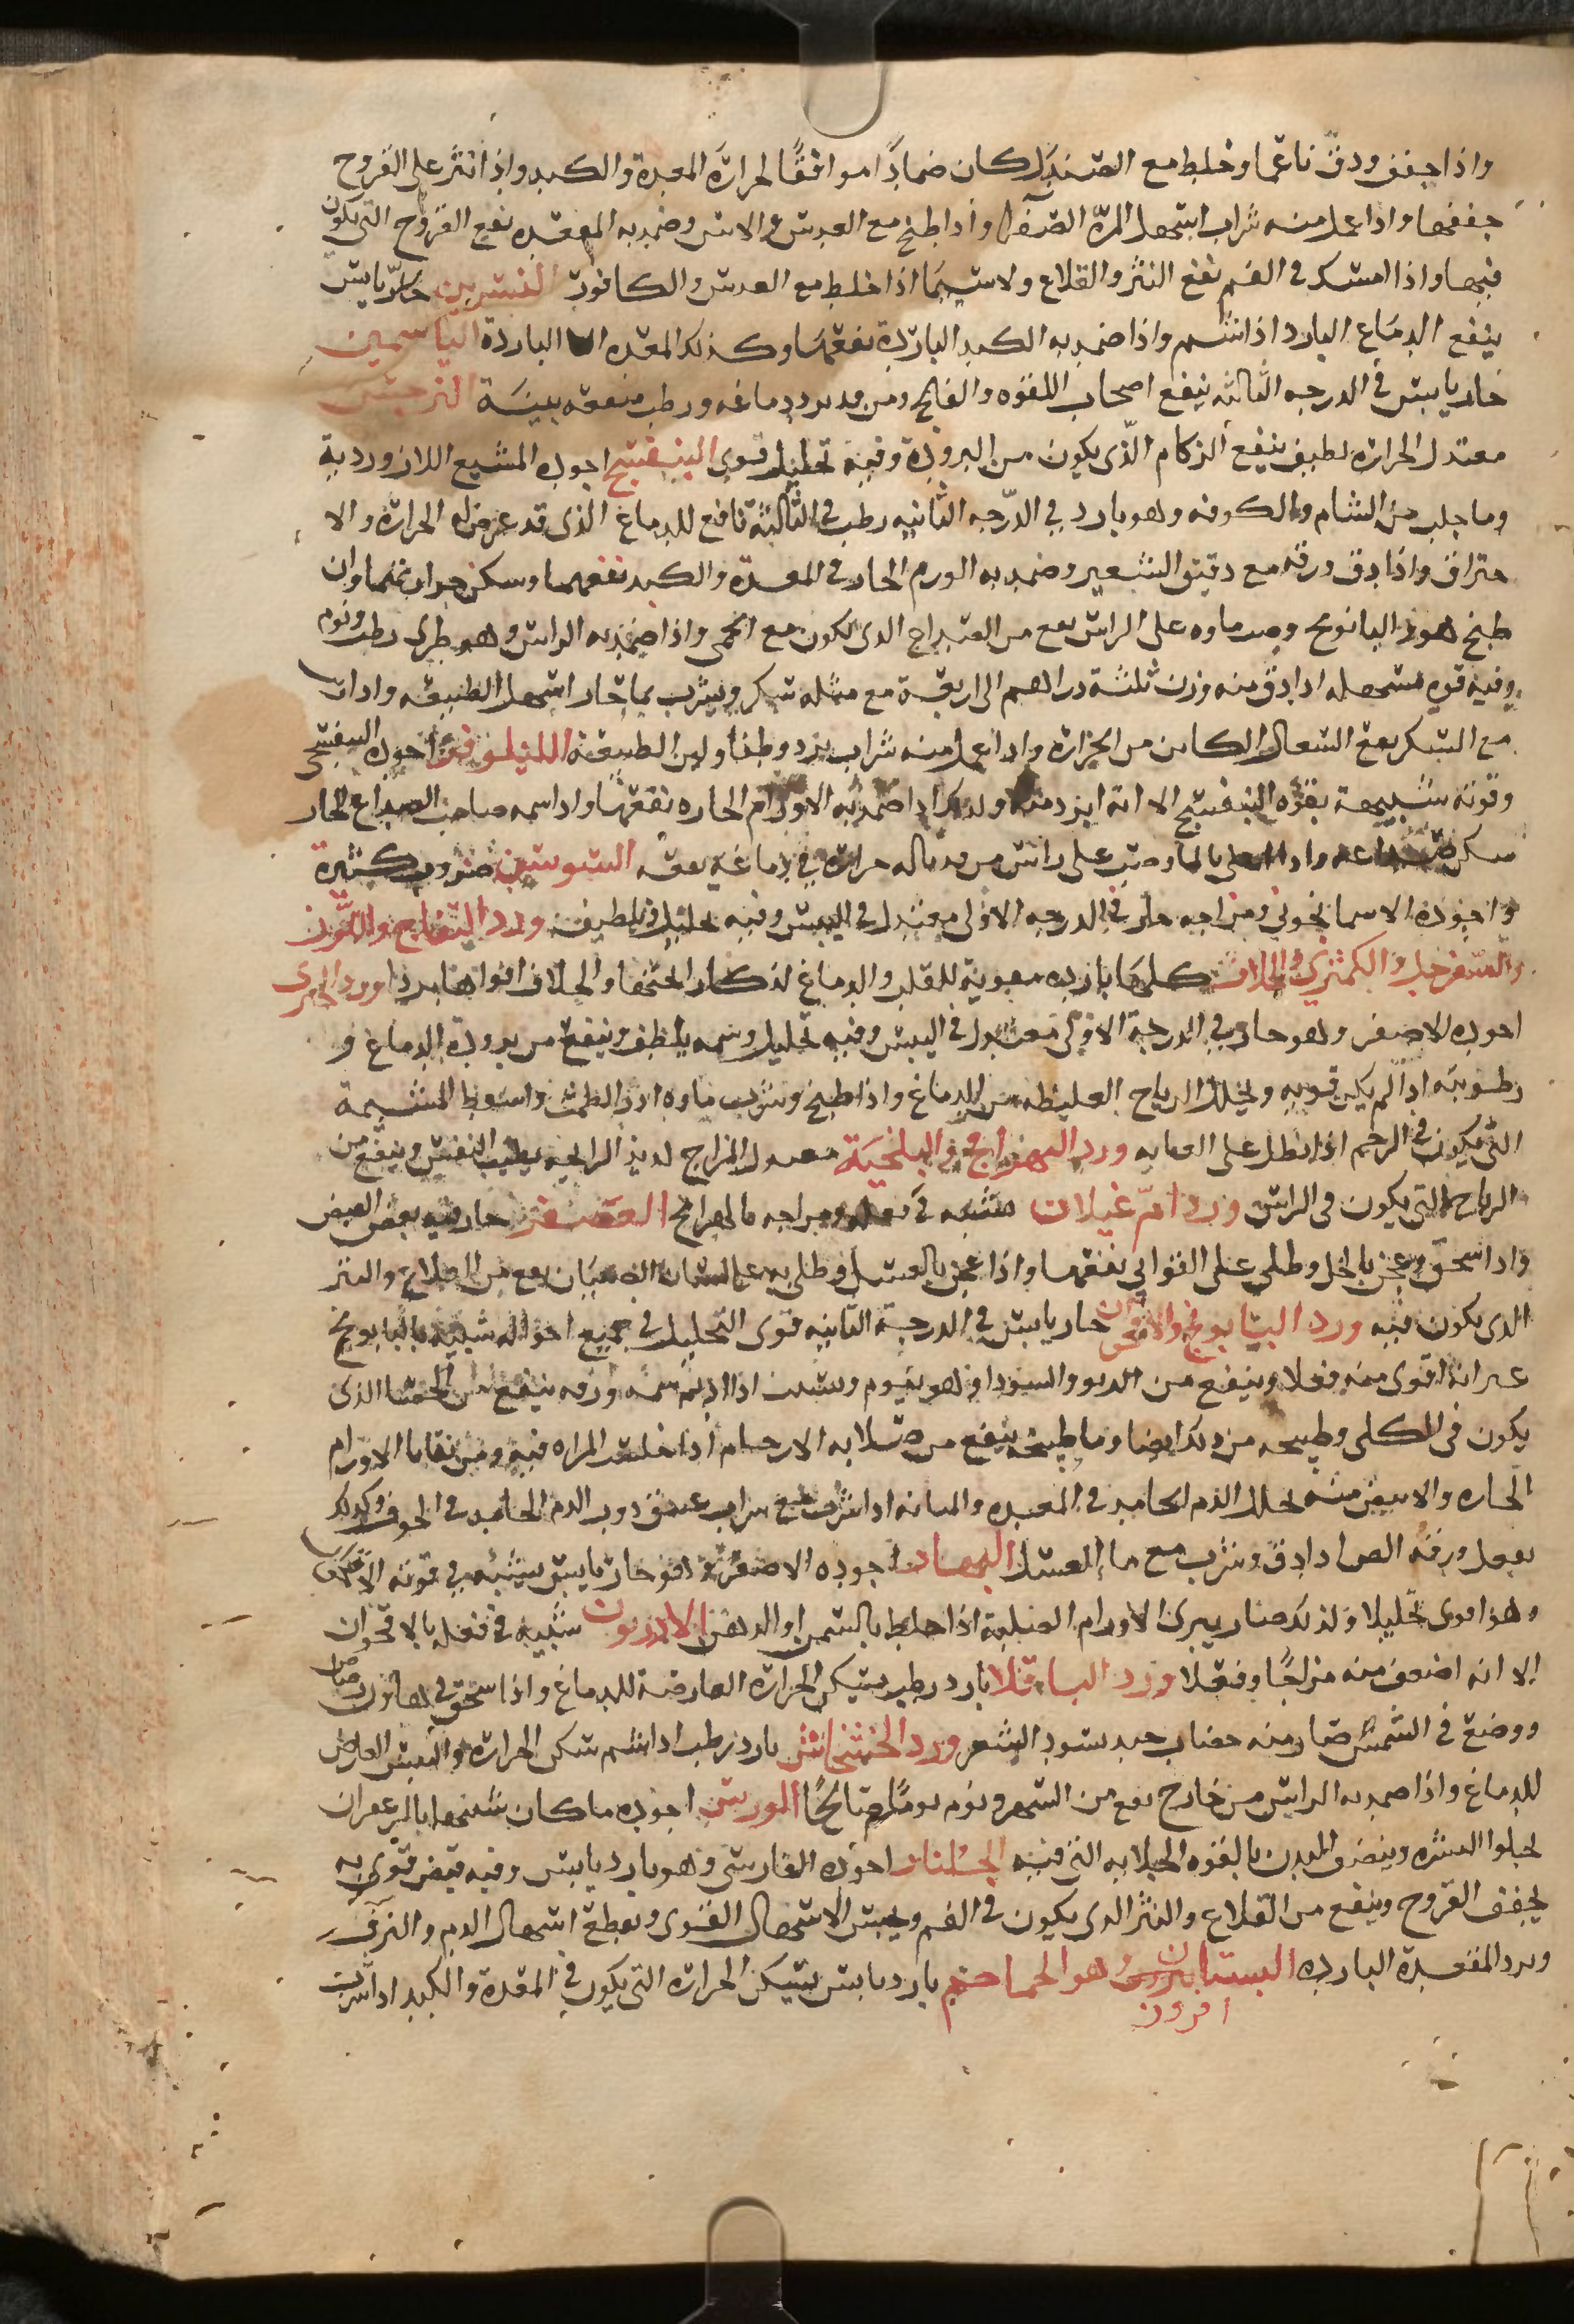 واذا جفف ودق ناعما وخلط مع الصندل كان ضمادًا موافقًا لحرارة المعدة والكبد واذا نثر على القروح
جففها واذا عمل منه شراب اسهل المرة الصفرا واذا طبخ مع العدس والاس وضمد به المقعده نفع القروح التى يكون
فيها واذا امسك فى الفم نفع البثر والقلاع ولا سيما اذا خلط مع العدس والكافور النسرين حار يابس
ينفع الدماغ البارد اذا اشتم واذا ضمد به الكبد الباردة نفعها وكذلك المعده الباردة الياسمين
حار يابس فى الدرجه الثالثه ينفع اصحاب اللقوه والفالج ومن قد برد دماغه ورطب منفعه بينة النرجس
معتدل الحرارة لطيف ينفع الزكام الذى يكون من البرودة وفيه تحليل قوى البنفسج اجوده المشبع اللازوردية
وما جلب من الشام والكوفه وهو بارد في الدرجه الثانيه رطب فى الثالثة نافع للدماغ الذى قد عرض له الحرارة والا
حتراق واذا دق ورقه مع دقيق الشعير وضمد به الورم الحار فى المعدة والكبد نفعهما وسكن حرارتهما وان
طبخ هو والبابونج وصب ماوه على الراس نفع من الصداع الذى يكون مع الحمى واذا ضمد به الراس وهو طرى رطب ونوم
وفيه قوه مسهله اذا دق منه وزن ثلثة دراهم الى اربعة مع مثله سكر ويشرب بما حار اسهل الطبيعه واذا
مع السكر نفع السعال الكاين من الحرارة واذا عمل منه شراب برد وطفا ولين الطبيعة اللينلوفر اجوده البنفسجى
وقوته شبيهة بقوه البنفسج الا انه ابرد منه ولذلك اذا ضمد به الاورام الحاره نفعها واذا شمه صاحب الصداع الحار
سكن صداعه واذا على بالما وصب على راس من قد ناله حرارة في دماغه نفعه السوسن ضروب كثيرة
واجوده الاسمانجونى ومزاجه حار فى الدرجه الاولى معتدل فى اليبس وفيه تحليل وتلطيف ورد التفاح واللوز
والسفرجل والكمثرى والخلاف كلها بارده مقوية للقلب والدماغ اذا كان الحتفها والخلاف اقواها بردا ورد الخيرى
اجوده الاصفر وهو حار في الدرجة الاولى معتدل فى اليبس وفيه تحليل وشمه يلطف وينفع من برودة الدماغ و
رطوبته اذا لم يكن قويه ويحلل الرياح الغليظه من الدماغ واذا طبخ وشرب ماوه ادر الطمث واسقط المشيمة
التى يكون فى الرحم اذا نطل على العانه ورد البهرامج والبلخية معتدل المزاج لذيذ الرايحه يطيب النفس وينفع من
الرياح التى يكون فى الراس ورد ام غيلان شبيه فى فعله ومزاجه بالبهرامج العصفر حار فيه بعض القبض
واذا سحق وعجن بالخل وطلى على القوابى نفعها واذا عجن بالعسل وطلى به على لسان الصبيان نفع من القلاع والبثر
الذى يكون فيه ورد البابونج والاقحوان حار يابس في الدرجة الثانيه قوى التحليل في جميع احواله شبيه بالبابونج
غير انه اقوى منه فعلا وينفع من الربو والسودا وهو ينوم ويسبت اذا اديم شمه وزهره ينفع من الحصا الذى
يكون فى الكلى وطبيخه من ذلك ايضا وما طبيخه ينفع من صلابه الارحام اذا جلست المراه فيه ومن بقايا الاورام
الحاره والابيض منه يحلل الدم الجامد فى المعده والمثانه اذا شرب مع شراب عتيق ذوب الدم الجامد فى الجوف وكذلك
يفعل ورقه الغض اذا دق وشرب مع ما العسل البهار اجوده الاصفر وهو حار يابس يشبه في قوته الاقحوان
وهذا اقوى تحليلا ولذلك صار يبرى الاورام الصلبة اذا خلط بالشمع والدهن الاذريون شبيه فى فعله بالاقحوان
الا انه اضعف منه مزاجًا وفعلا ورد الباقلا بارد رطب يسكن الحرارة العارضة للدماغ واذا سحق في هاون رصاص
ووضع فى الشمس صار منه خضاب جيد يسود الشعر ورد الخشخاش بارد رطب اذا اشتم سكن الحرارة واليبس العارض
للدماغ واذا ضمد به الراس من خارج نفع من السهر ونوم نومًا صالحًا الورس اجوده ما كان شبيها بالزعفران
يجلوا البشره وينقى البدن بالقوه الجلايه التى فيه الجلنار اجوده الفارسى وهو بارد يابس وفيه قبض قوى به
يجفف القروح وينفع من القلاع والبثر الذى يكون فى الفم ويحبس الاسهال القوى ويقطع اسهال الدم والنزف
وبرد المقعدة البارده البستان وهو الحماحم بارد يابس يسكن الحرارة التى يكون فى المعدة والكبد اذا شرب
افروز